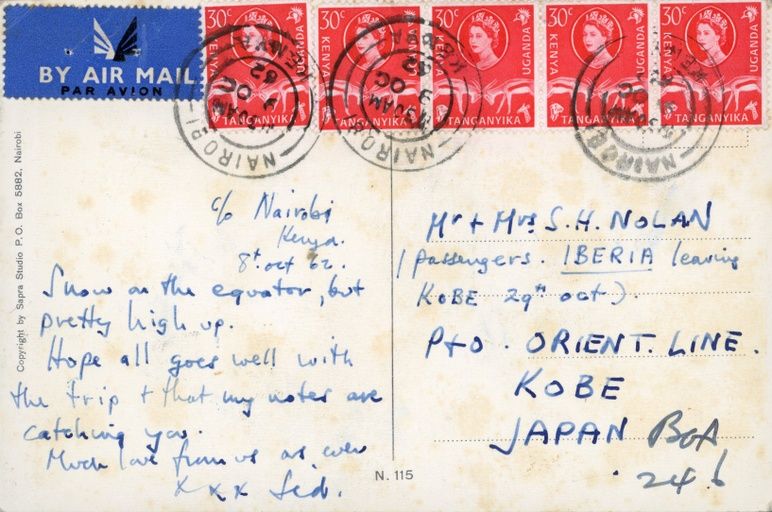 BY AIR MAIL
PAR AVION
30c KENYA UGANDA TANGANYIKA
30c KENYA UGANDA TANGANYIKA
30c KENYA UGANDA TANGANYIKA
30c KENYA UGANDA TANGANYIKA
30c KENYA UGANDA TANGANYIKA
NAIROBI KENYA 9 OC 62
NAIROBI KENYA 9 OC 62
NAIROBI
Copyright by Sapra Studio P.O. Box 5882, Nairobi
c/o Nairobi
Kenya.
8t. oct 62.
Snow on the equator, but
pretty high up.
Hope all goes well with
the trip + that my notes are
catching you.
Much love from us as ever
x x x
N. 115
Mr + Mrs S. H. NOLAN
(passengers. IBERIA leaving
KOBE 29th oct).
P+O. ORIENT. LINE.
KOBE
JAPAN
24